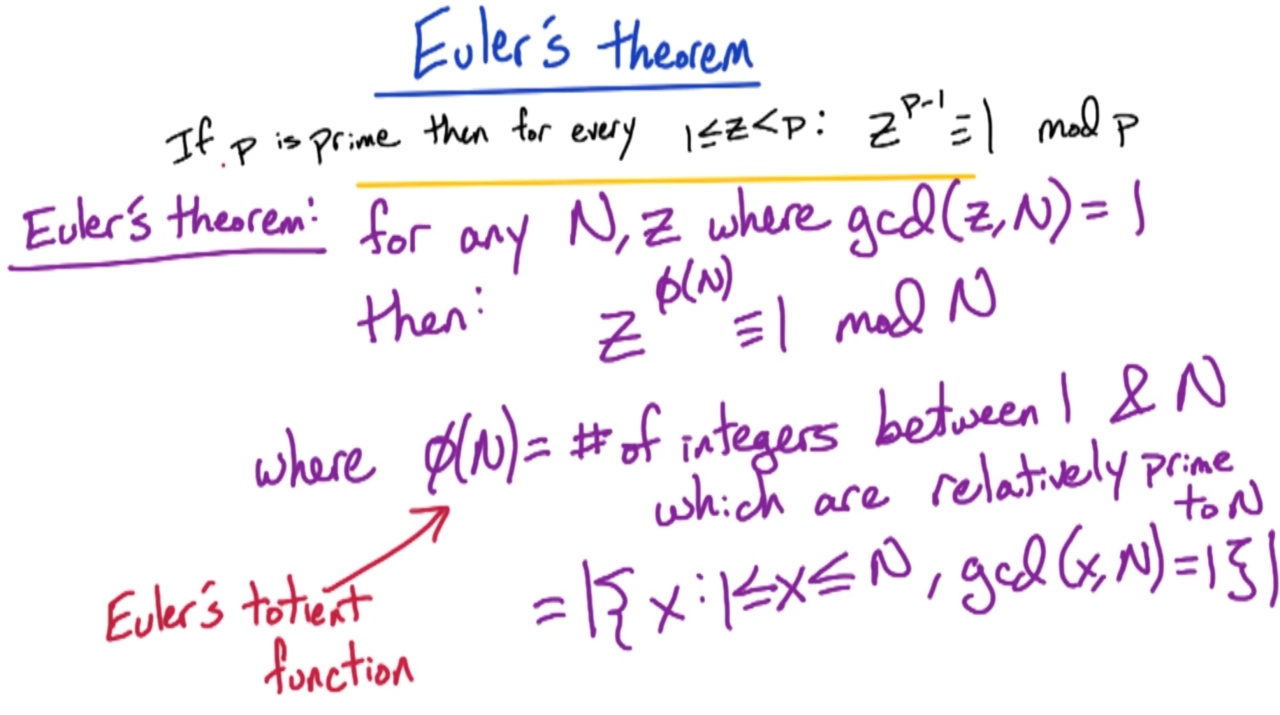 Euler's theorem
If p is prime then for every 1≤z<p: z^{p-1} ≡ 1 mod p
Euler's theorem: for any N, z where gcd(z, N) = 1
then: z^{ϕ(N)} ≡ 1 mod N
where ϕ(N) = # of integers between 1 & N
which are relatively prime
to N
= |{x : 1≤x≤N, gcd(x,N)=1}|
Euler's totient
function